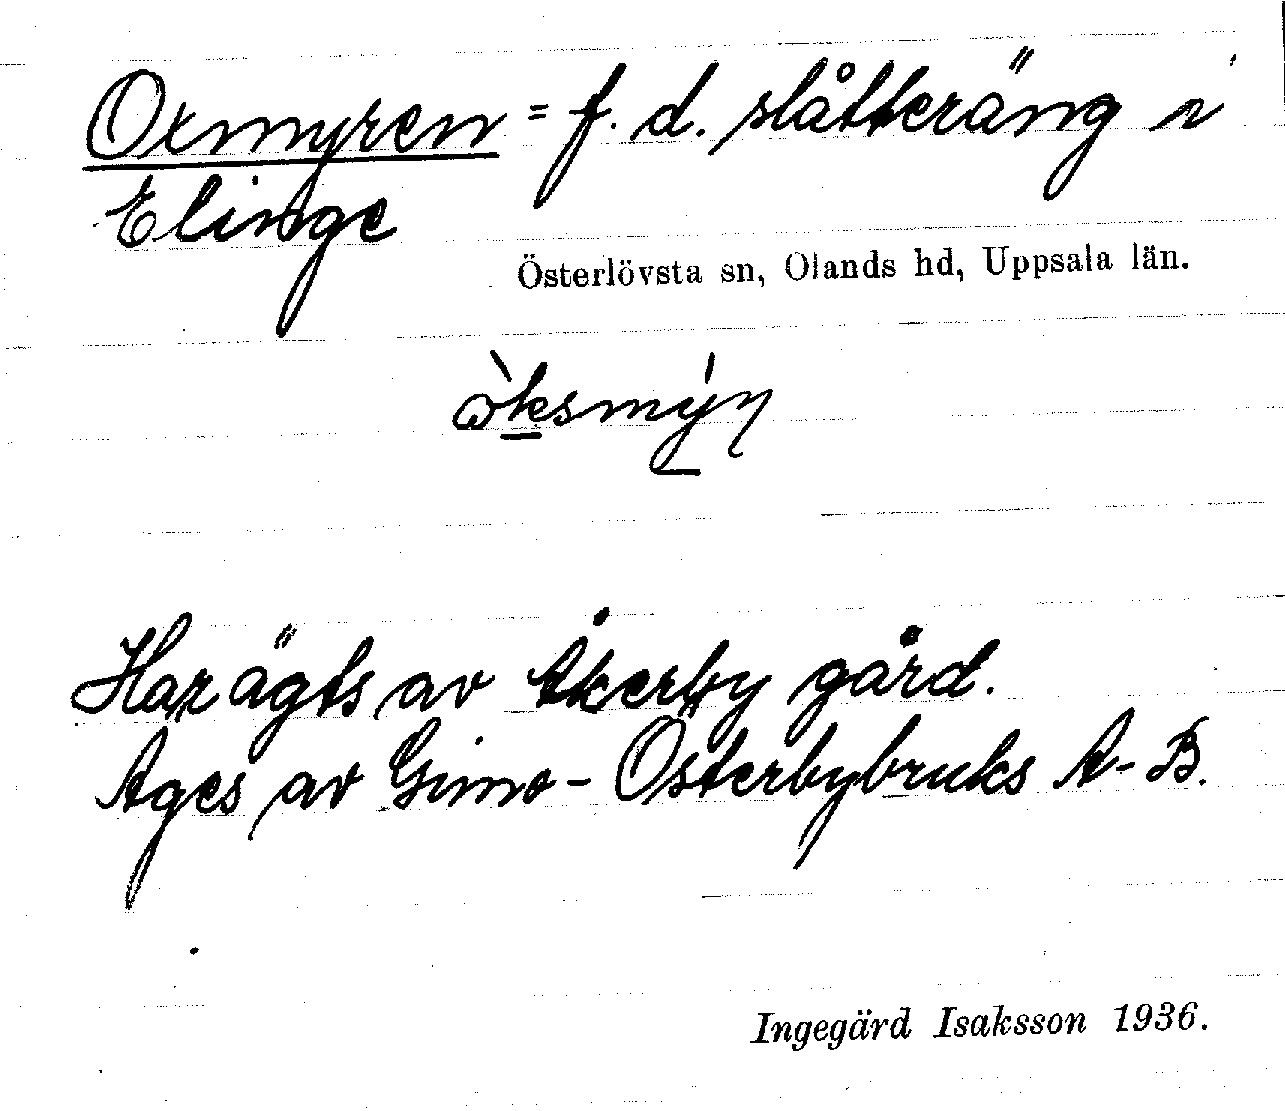 Oxmyren = f. d. slåtteräng i
Elinge
Österlövsta sn, Olands hd, Uppsala län.
ɷ̀ksmýn̥
Har ägts av Åkerby gård.
Äges av Gimo-Österbybruks A-B.
Ingegärd Isaksson 1936.